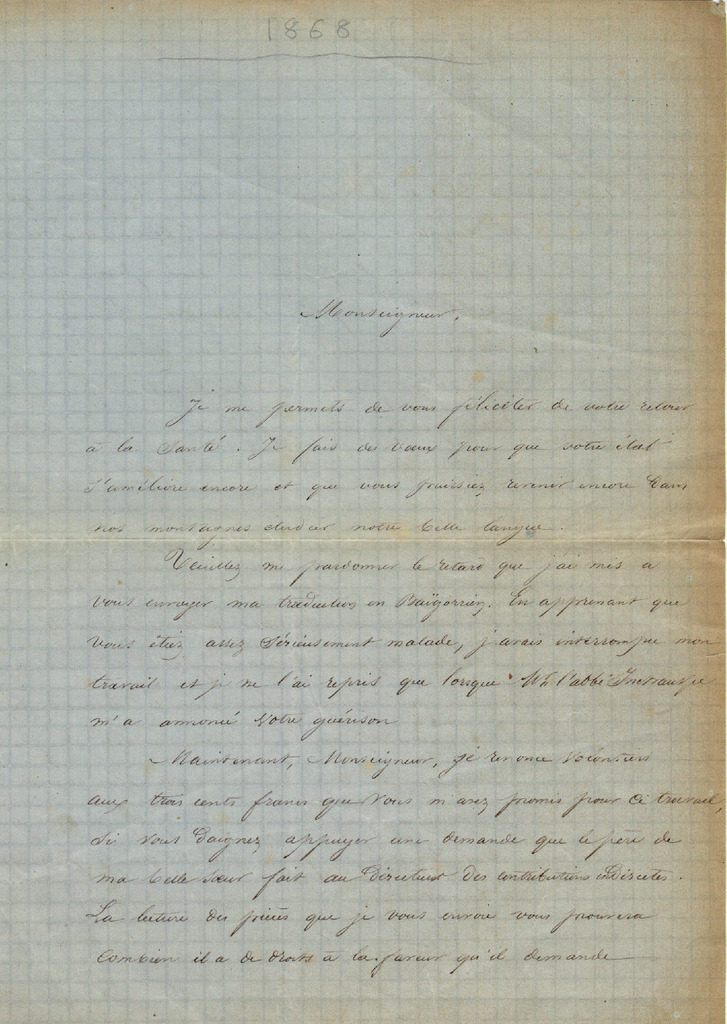 1868
Monseigneur,
Je me permets de vous féliciter de votre retour
à la Santé. Je fais des vœux pour que votre état
s'améliore encore et que vous puissiez revenir encore dans
nos montagnes étudier notre belle langue.
Veuillez me pardonner le retard que j'ai mis à
vous envoyer ma traduction en Baïgorrien. En apprenant que
vous étiez assez sérieusement malade, j'avais interrompu mon
travail et je ne l'ai repris que lorsque Mr l'abbé Inchauspe
m'a annoncé votre guérison
Maintenant, Monseigneur, je renonce volontiers
aux trois cents francs que vous m'avez promis pour ce travail,
si vous daignez appuyer une demande que le père de
ma belle sœur fait au Directeur des contributions indirectes.
La lecture des pièces que je vous envoie vous prouvera
combien il a de droits à la faveur qu'il demande